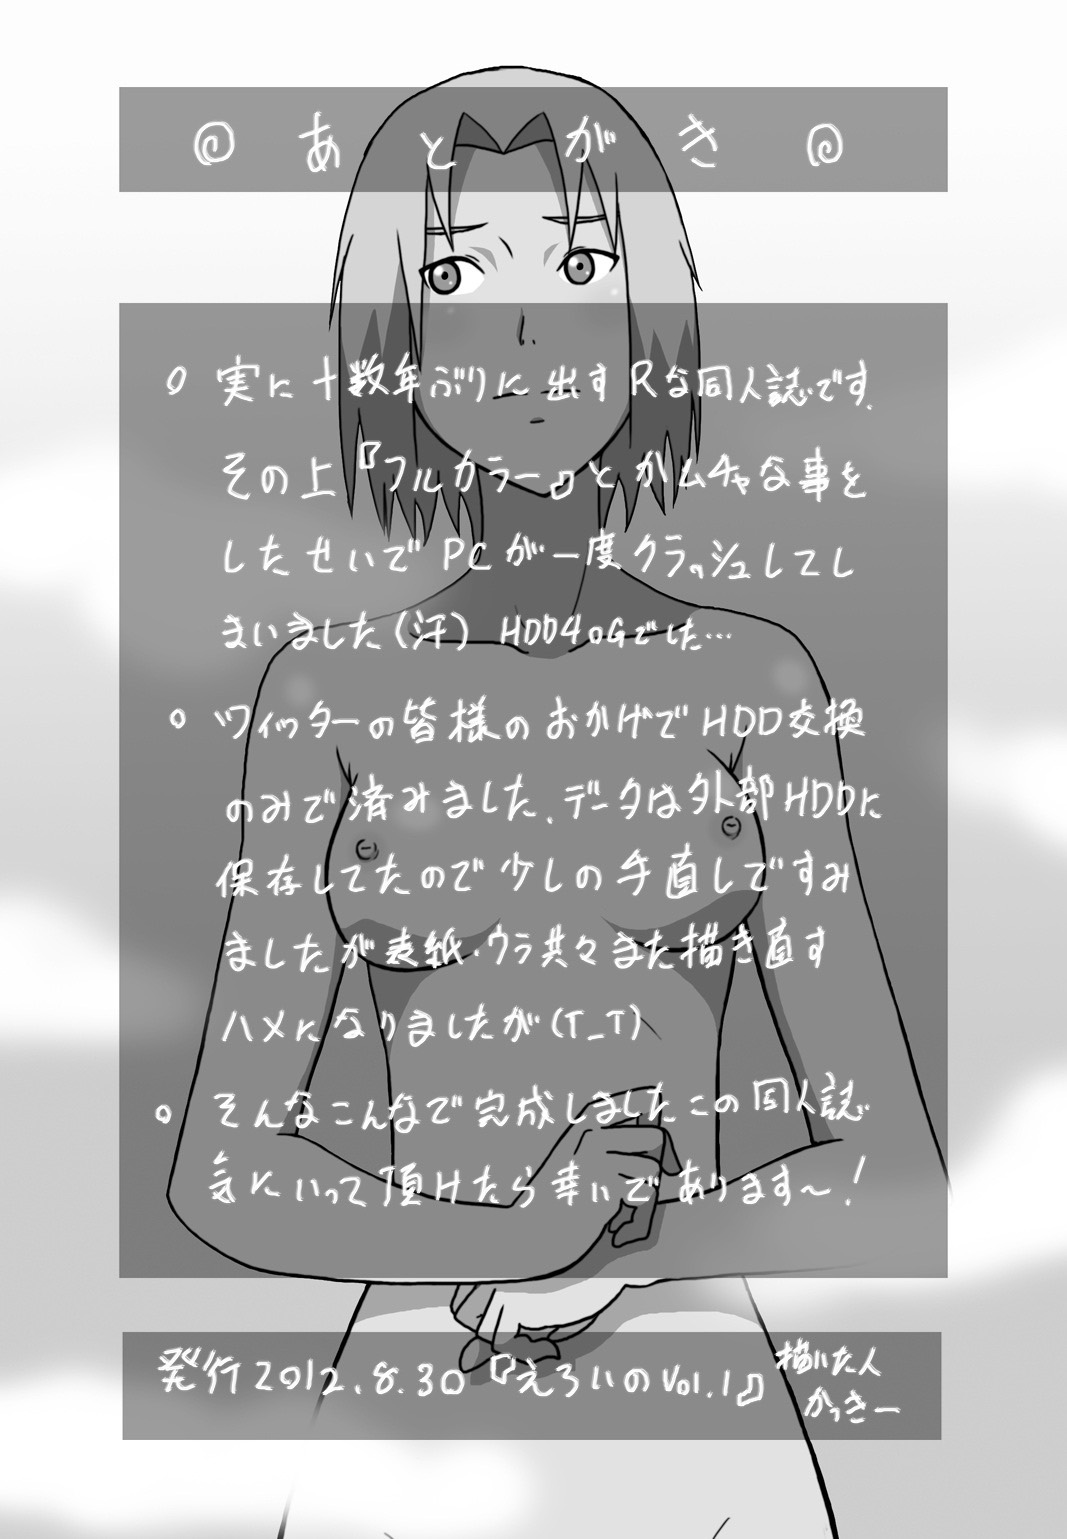 @あとがき@
○ 実に十数年ぶりに出すRな同人誌です、
その上『フルカラー』とかムチャな事を
したせいでPCが一度クラッシュしてし
まいました(汗) HDD40Gでした…
○ ツイッターの皆様のおかげでHDD交換
のみで済みました、データは外部HDDに
保存してたので少しの手直しですみ
ましたが表紙・ウラ共々また描き直す
ハメになりましたが(T_T)
○ そんなこんなで完成しましたこの同人誌
気にいって頂けたら幸いであります~!
発行2012.8.30『えろいのVol.1』
描いた人
かっきー